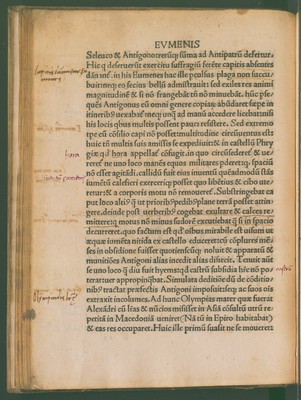 EVMENIS
Seleuco & Antigono rerūq; sūma ad Antipatrū defertur.
Hic q deseruerūt exercitu suffragiū ferēte capitis absentes
dān nf. in his Eumenes hac ille pculsus plaga non succu
buit neq; eo secius bellū admīstrauit: sed exiles res animi
magnitudinē & si nō frangebāt tn̄ nō minuebāt. hūc pse
ques Antigonus cū omni genere copiaꝝ abūdaret sæpe in
itineribꝰ uexabat neq; unqꝫ ad manū accedere licebat nisi
his locis qbus multis possent pauci resistere. Sed extremo
tpe cū cōsilio capi nō posset multitudine circūuentus est
huic tn̄ multis suis amissis se expediuit: & in castellū Phry
hora
giæ qꝫ hora appellaᵗ cōfugit. in quo circūsideret & ue
reret ne uno loco manēs equos militares pderet: qꝫ spaciū
nō esset agitādi. callidū fuit eius inuentū quēadmodū stās
iumētū calefieri exerceriqꝫ posset quo libētius & cibo ute
retur: & a corporis motu nō remoueret. Substringebat ca
put loco altiꝰ qꝫ ut prioribꝰ pedibꝰ plane terrā posset attin
gere. deinde post uerberibꝰ cogebat exultare & calces re
mittere: q motus nō minus sudorē excutiebat qꝫ si in spacio
decurreret. quo factum est qd oībus mirabile est uisum ut
æque iumēta nitida ex castello educeret: cū cōplures mē
ses in obsidione fuisset quotienscūqꝫ noluit & apparatū &
munitiōes Antigoni alias incedit alias disiecit. Tenuit aūt
se uno loco qꝫ diu fuit hyems: qd castrū subsidia hr̄e nō pos
Simulata deditiōe dū de cōditio
nibꝰ tractat præfectis Antigoni imposuit: seqꝫ ac suos oīs
extraxit incolumes. Ad hunc Olympias mater quæ fuerat
Alexādri cū lr̄as & nūcios misisset in Asiā cōsultū utrū re
petitū in Macedoniā ueniret (Nā tū in Epiro habitabat)
& eas res occuparet. Huic ille primū suasit ne se moueret: